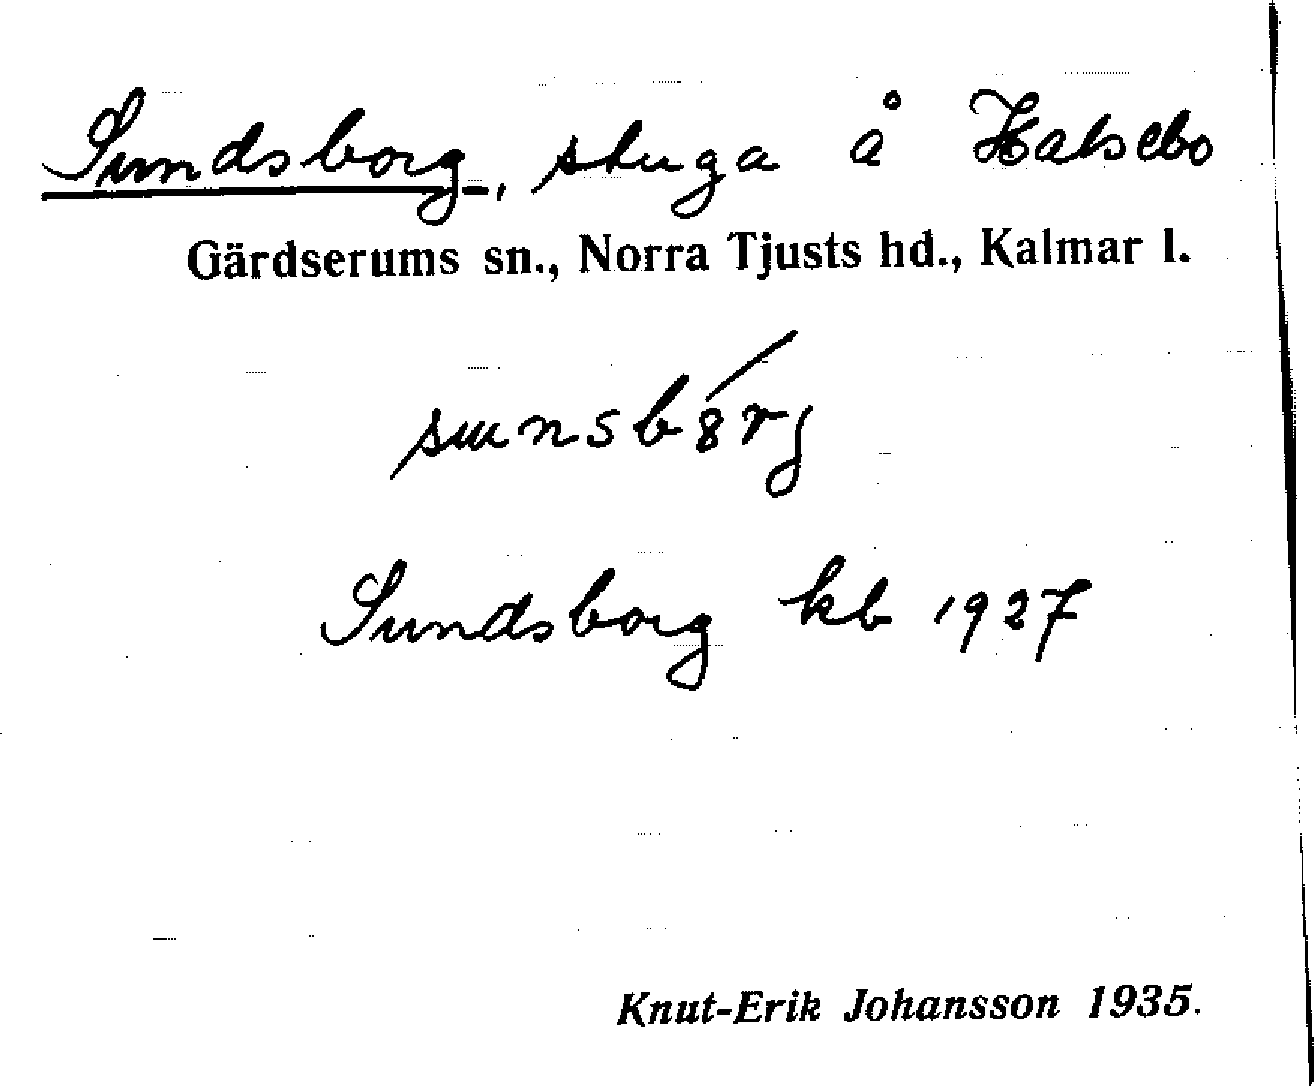 Sundsborg, stuga å Halsebo
Gärdserums sn., Norra Tjusts hd., Kalmar l.
sunsb8rj
Sundsborg kb 1927
Knut-Erik Johansson 1935.